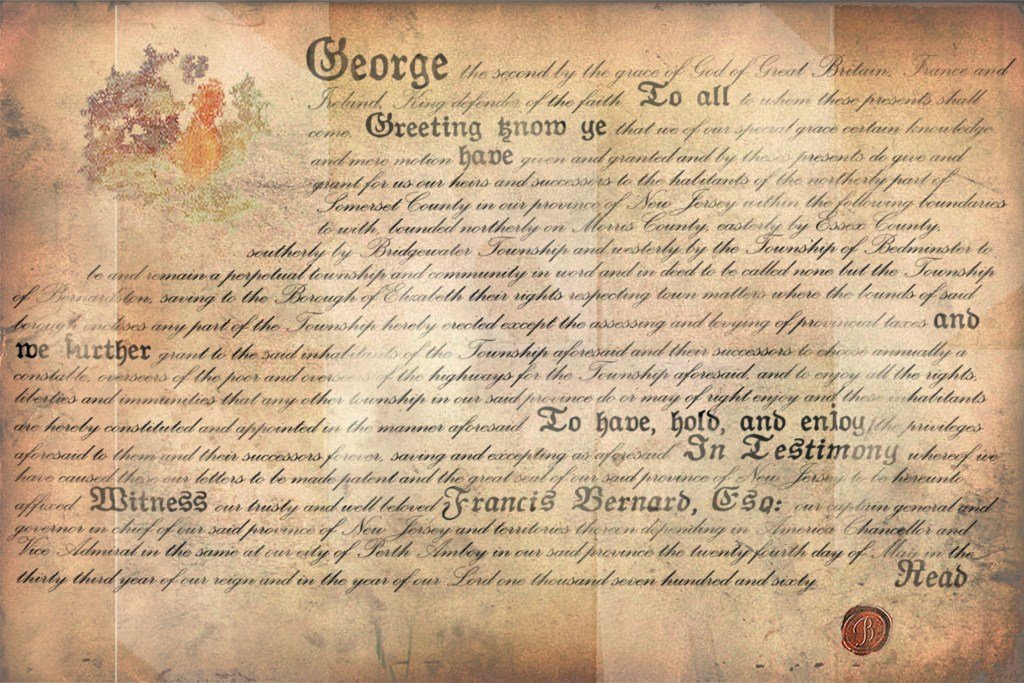 George the second by the grace of God of Great Britain, France and
Ireland, King defender of the faith. To all to whom these presents shall
come, Greeting know ye that we of our special grace certain knowledge
and mere motion have given and granted and by these presents do give and
grant for us our heirs and successors to the habitants of the northerly part of
Somerset County in our province of New Jersey within the following boundaries
to with, bounded northerly on Morris County, easterly by Essex County,
southerly by Bridgewater Township and westerly by the Township of Bedminster to
be and remain a perpetual township and community in word and in deed to be called none but the Township
of Bernardston, saving to the Borough of Elizabeth their rights respecting town matters where the bounds of said
borough encloses any part of the Township hereby erected except the assessing and levying of provincial taxes and
we further grant to the said inhabitants of the Township aforesaid and their successors to choose annually a
constable, overseers of the poor and overseers of the highways for the Township aforesaid, and to enjoy all the rights,
liberties and immunities that any other township in our said province do or may of right enjoy and these inhabitants
are hereby constituted and appointed in the manner aforesaid. To have, hold, and enjoy, the privileges
aforesaid to them and their successors forever, saving and excepting as aforesaid. In Testimony whereof we
have caused these our letters to be made patent and the great seal of our said province of New Jersey to be hereunto
affixed. Witness our trusty and well beloved Francis Bernard, Esq: our captain general and
governor in chief of our said province of New Jersey and territories thereon depending in America Chancellor and
Vice Admiral in the same at our city of Perth Amboy in our said province the twenty fourth day of May in the
thirty third year of our reign and in the year of our Lord one thousand seven hundred and sixty. Read
B